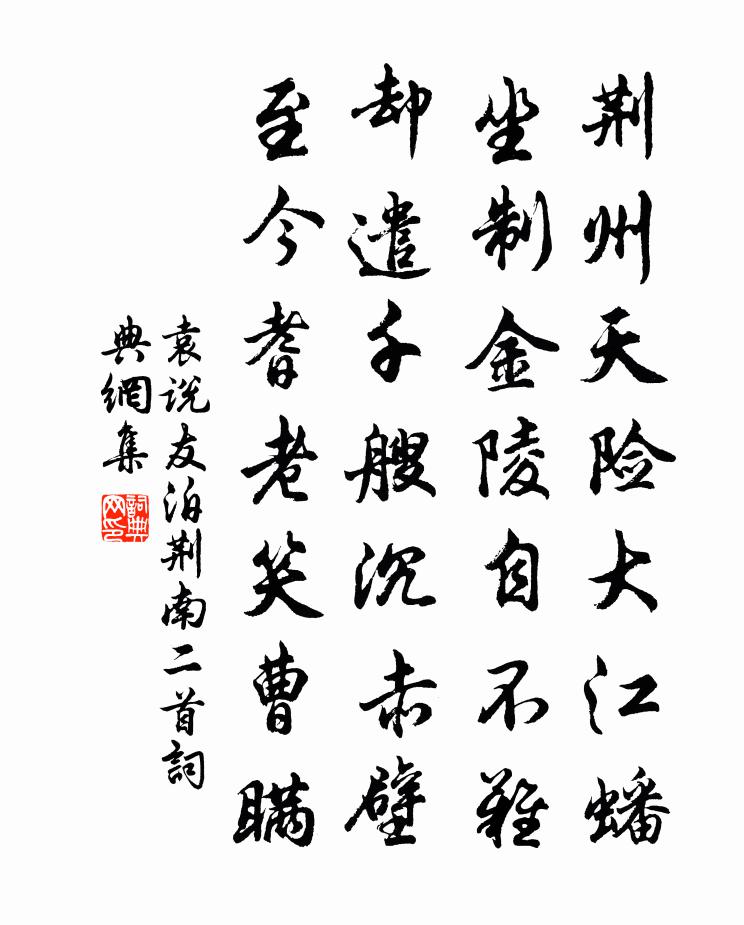 荆州天险大江蟠
坐制金陵自不难
却遣千艘沉赤壁
至今耆老笑曹瞒
袁说友泊荆南二首詞
典網集
詞典网印